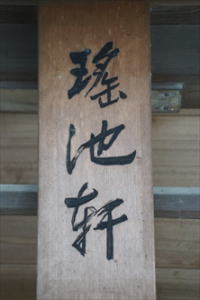 瑤池軒